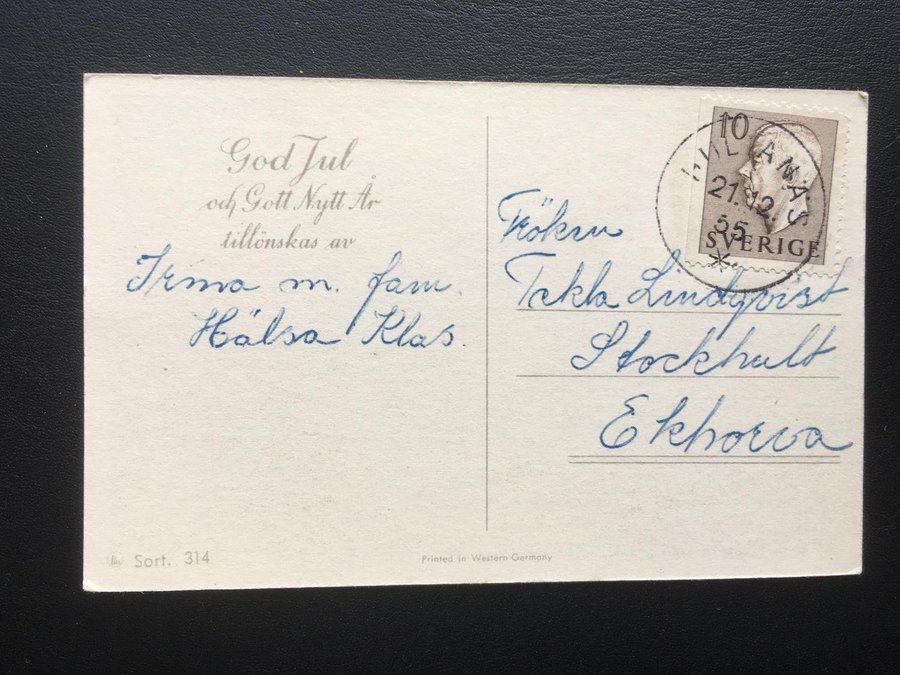 God Jul
och Gott Nytt År
tillönskas av
Irma m. fam.
Hälsa Klas.
10
SVERIGE
21.12
55
Fröken
Tekla Lindqvist
Stockhult
Ekhorva
Sort. 314
Printed in Western Germany